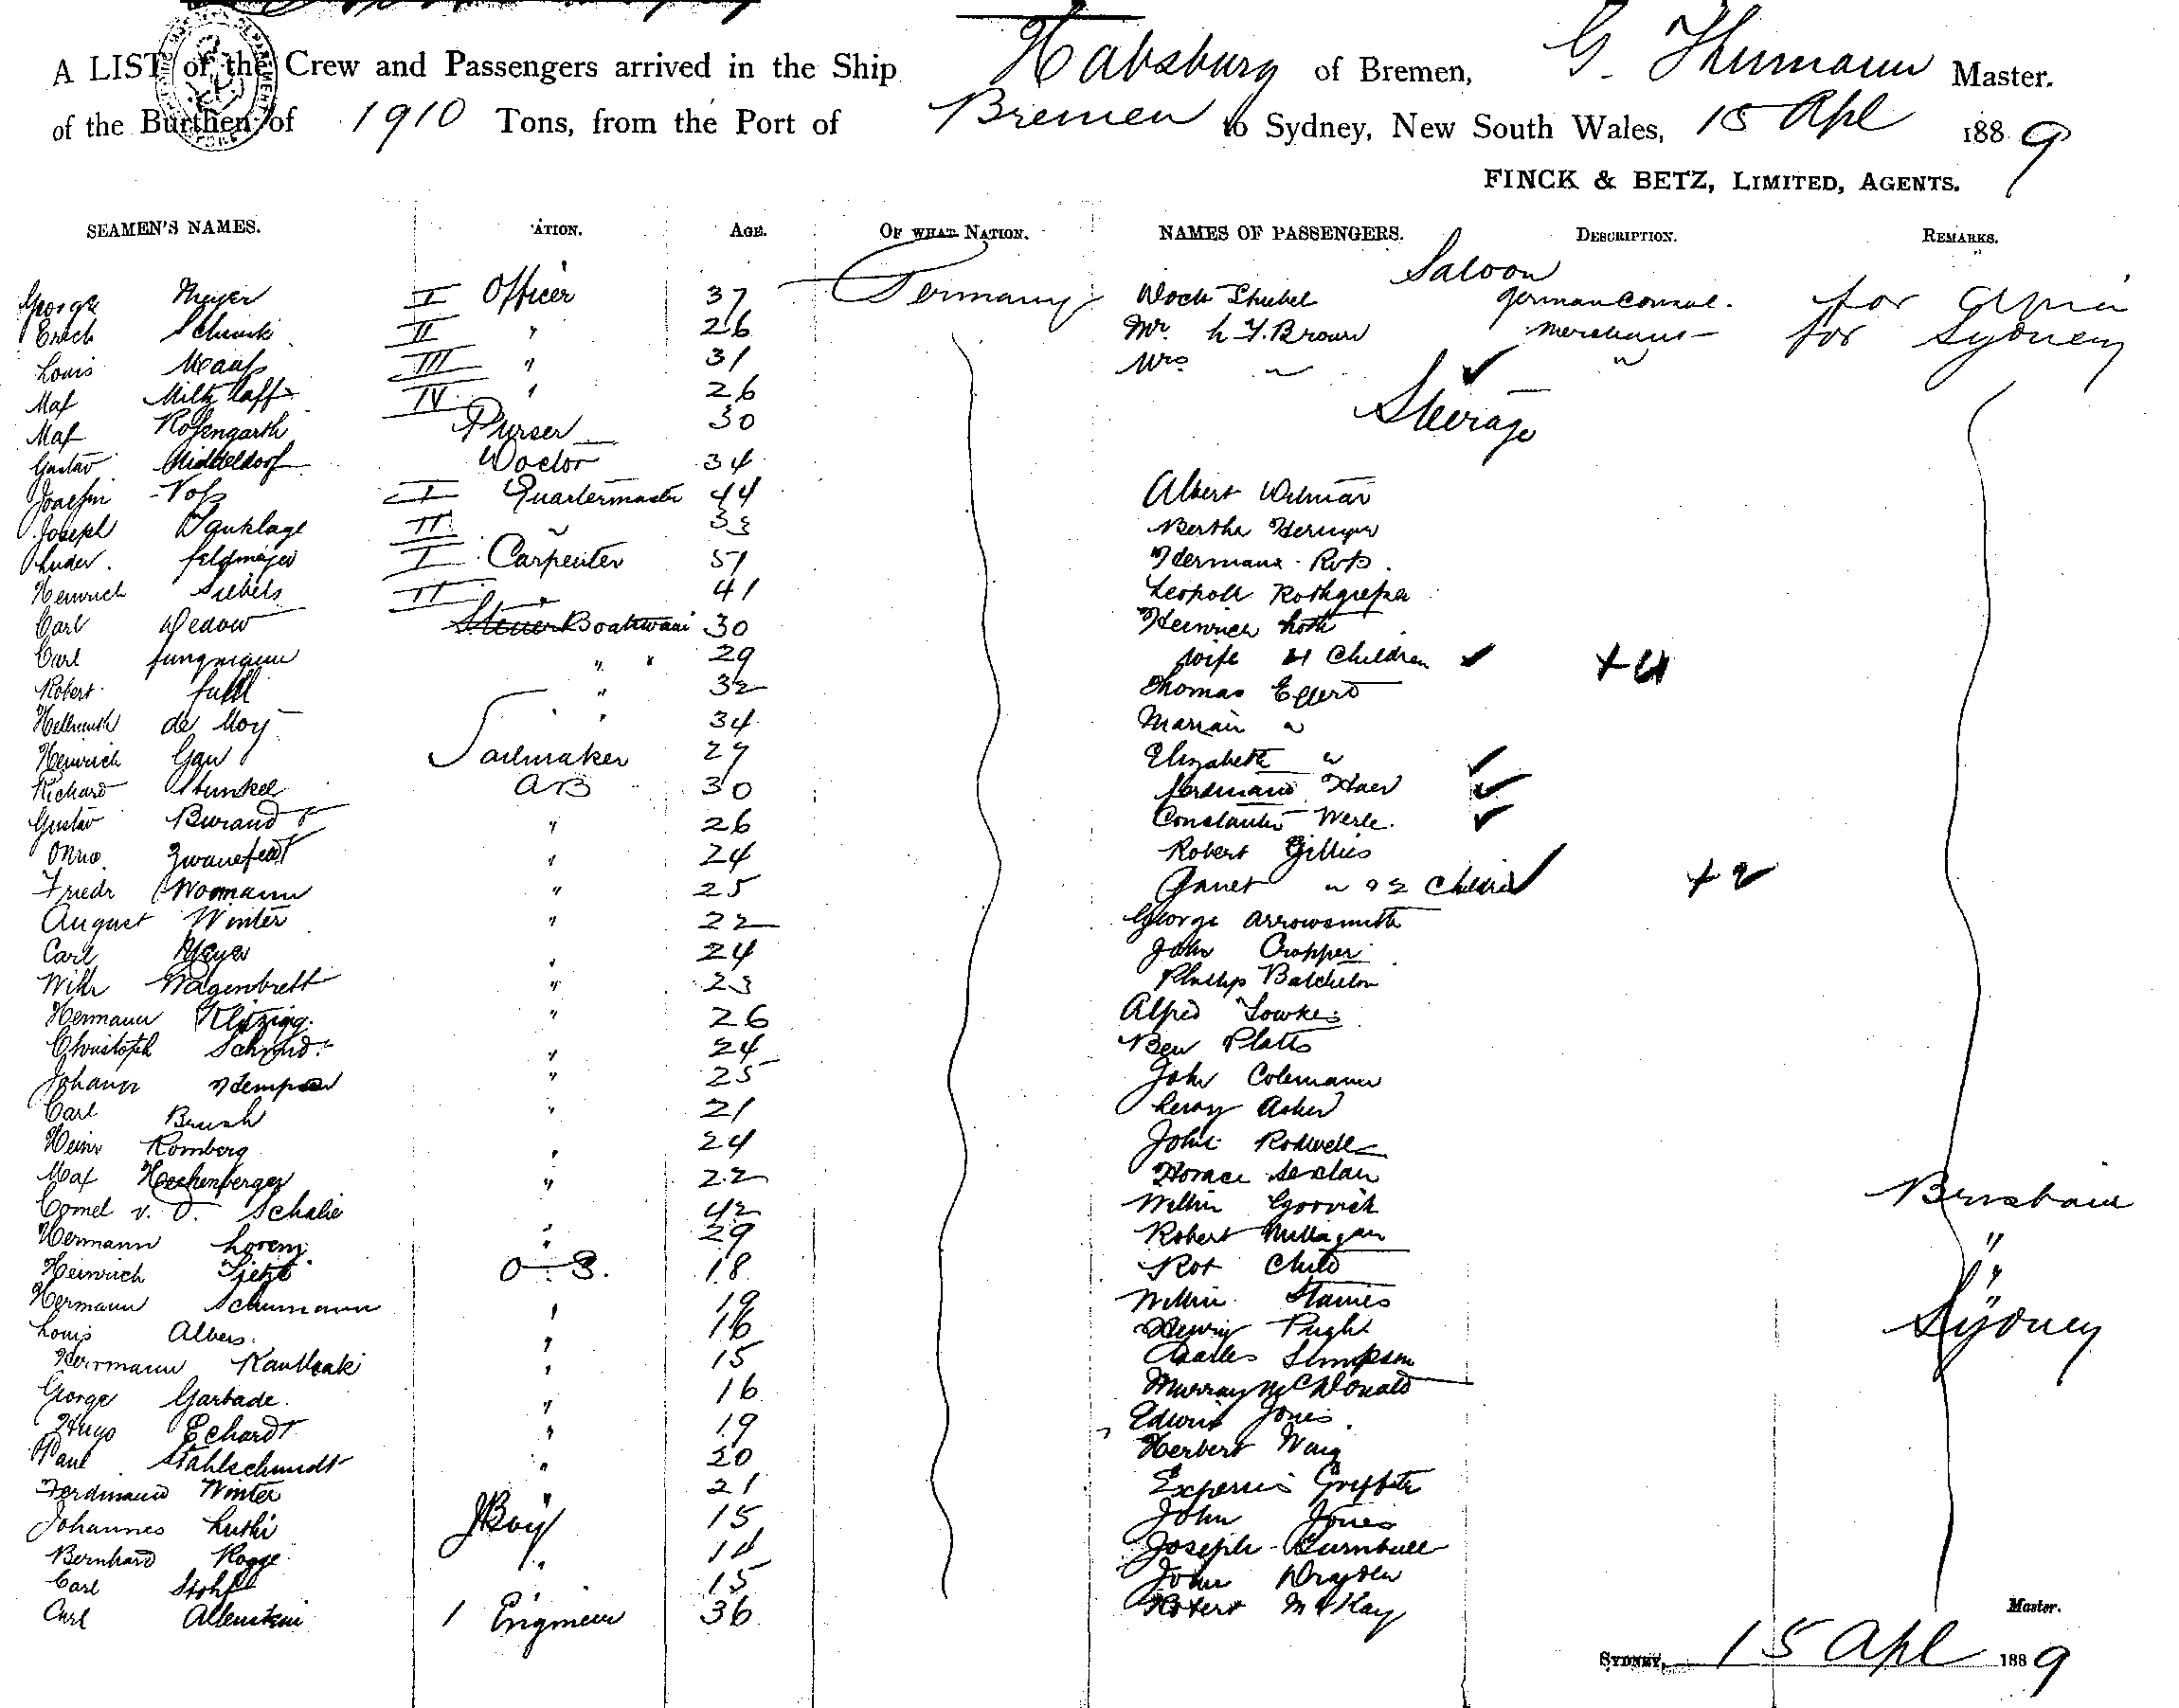 A LIST of the Crew and Passengers arrived in the Ship Habsburg of Bremen, G. Thumann Master.
of the Burthen of 1910 Tons, from the Port of Bremen to Sydney, New South Wales, 15 Apl 1889
FINCK & BETZ, LIMITED, AGENTS.
SEAMEN'S NAMES. ATION. AGE. OF WHAT NATION. NAMES OF PASSENGERS. DESCRIPTION. REMARKS.
Saloon
George Meyer I Officer 37 Germany german Consul. for Apia
Erich Schunk II " 26 Mr. H. F. Brown Merchant for Sydney
Louis Maaß III " 31 Mrs " "
Max IV " 26
Steerage
Max Rosengarth Purser 30
Gustav Middeldorf Doctor 34
Joachim Voß I Quartermaster 44 Albert
Joseph Tanklage II " 33 Bertha
Luder Feldmeyer I Carpenter 51 Hermann
Heinrich Siebels II " 41 Leopold
Carl Dedow Boatswain 30 Heinrich Roth
Carl Jungmann " " 29 wife 4 Children +4
Robert " 32 Thomas Effert
Hellmuth de Moy " " 34 Marian "
Heinrich Gau Sailmaker 27 Elizabeth "
Richard Stunkel AB 30 Ferdinand Haer
Gustav Burand " 26 Constantin Werle.
Onno " 24 Robert Gillies
Friedr Woomann " 25 Janet " & 2 Children +2
August Winter " 22 George Arrowsmith
Carl Meyer " 24 John Cropper
Wilh Wagenbrett " 23 Phillip Batchelor
Hermann Klitzing " 26 Alfred Fowkes
Christoph Schmid " 24 Ben Platts
Johann " 25 John Colemann
Carl Brush " 21 Leroy Asher
Heinr Romberg " 24 John Rodwell
Max Hechenberger " 22 Horace Sexlan
Cornel v. d. Schalie " 42 William Brisbane
Hermann Lorenz " 29 Robert Millagan "
Heinrich Tietze O.S. 18 Rot Child "
Hermann Schumann " 19 William Stanies "
Louis Albers. " 16 Henry Pugh Sydney
Herrmann " 15 Charles Simpson
George Garbade. " 16 Murray McDonald
Hugo Echardt " 19 Edwin Jones
Paul Stahlschmidt " 20 Herbert
Ferdinand Winter " 21 Griffith
Johannes Luthi Boy 15 John Jones
Bernhard Rogge " 14 Joseph Turnbull
Carl " 15 John Dryden
Carl Allenstein 1 Engineer 36 Robert McKay
Master.
SYDNEY, 15 Apl 1889